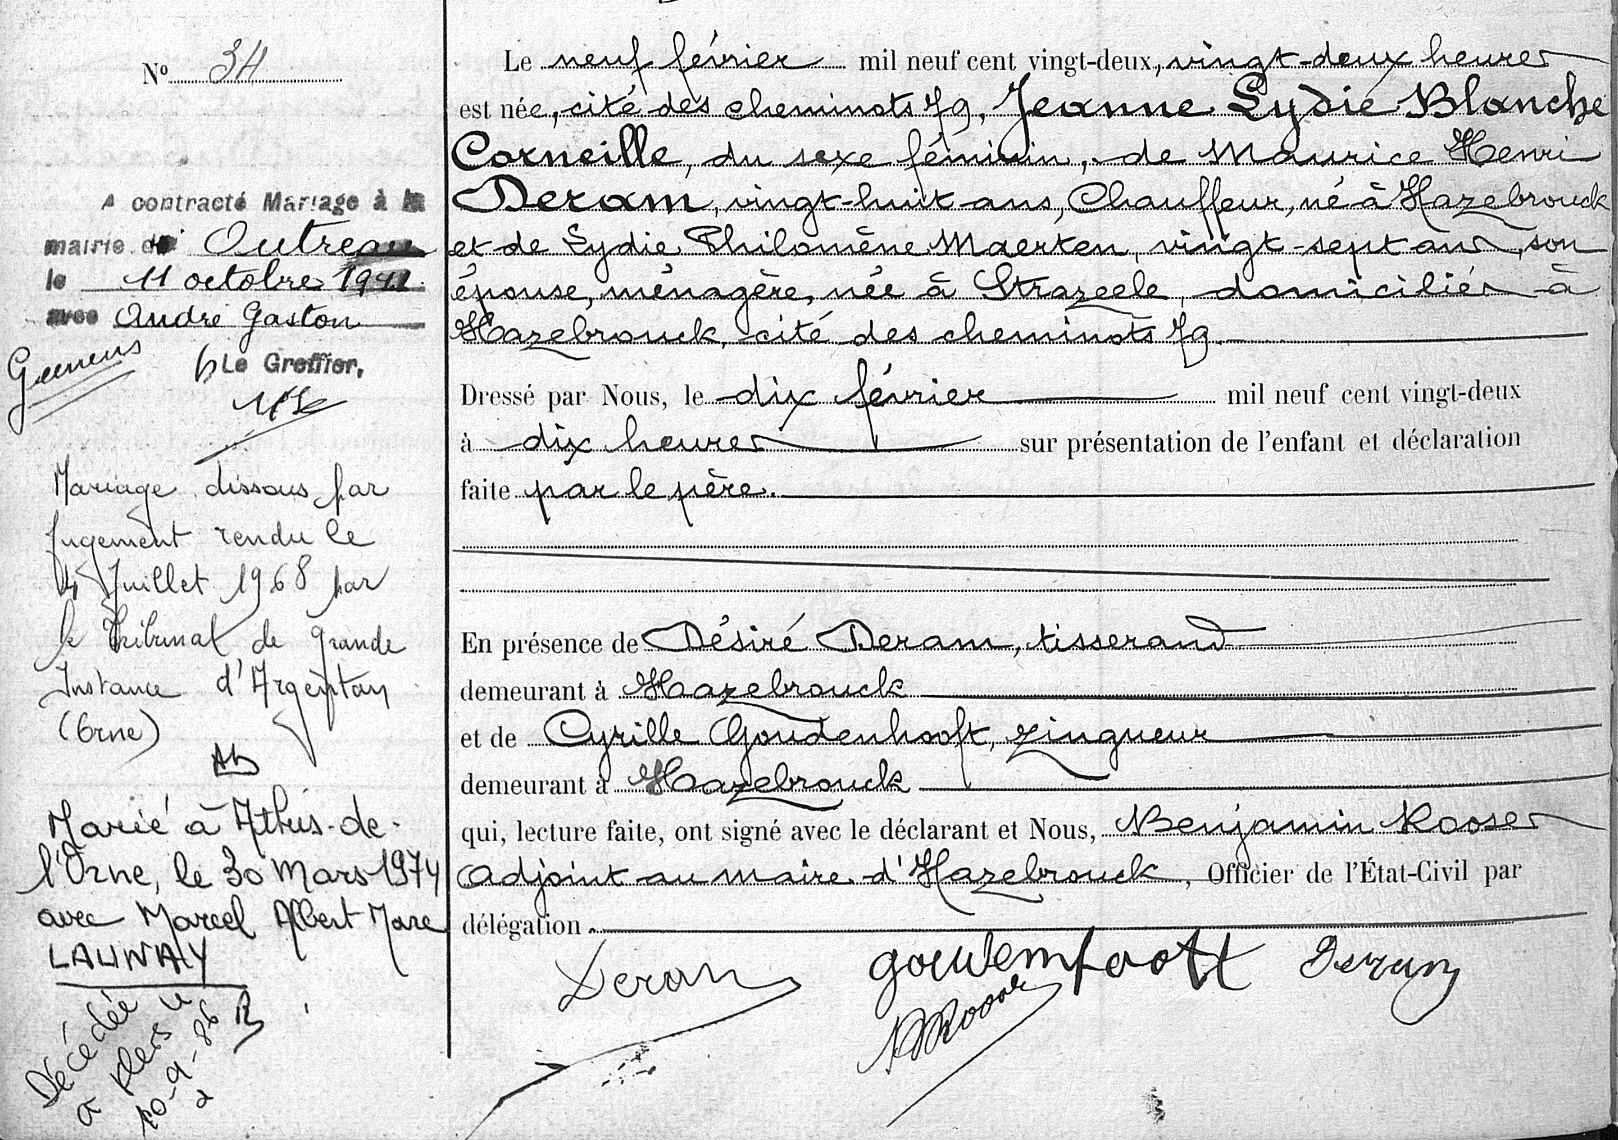 N° 34
A contracté Mariage à la
mairie de Outreau
le 11 octobre 1941
avec André Gaston
Guenens
Le Greffier,
Mariage dissous par
jugement rendu le
4 Juillet 1968 par
le Tribunal de grande
Instance d'Argentan
(Orne)
Marié à Athis-de-
l'Orne, le 30 Mars 1974
avec Marcel Albert Marc
LAUNAY
Décédée
à Flers le
10-9-86
Le neuf février mil neuf cent vingt-deux, vingt-deux heures
est née, cité des cheminots 79, Jeanne Lydie Blanche
Corneille, du sexe féminin, de Maurice Henri
Deram, vingt-huit ans, Chauffeur, né à Hazebrouck
et de Lydie Philomène Maerten, vingt-sept ans, son
épouse, ménagère, née à Strazeele, domiciliés à
Hazebrouck, cité des cheminots 79.
Dressé par Nous, le dix février mil neuf cent vingt-deux
à dix heures sur présentation de l'enfant et déclaration
faite par le père.
En présence de Désiré Deram, tisserand
demeurant à Hazebrouck
et de Cyrille Goudenhooft, zingueur
demeurant à Hazebrouck
qui, lecture faite, ont signé avec le déclarant et Nous, Benjamin Rooses
Adjoint au maire d'Hazebrouck, Officier de l'État-Civil par
délégation.
Deram goudemhooft Deram